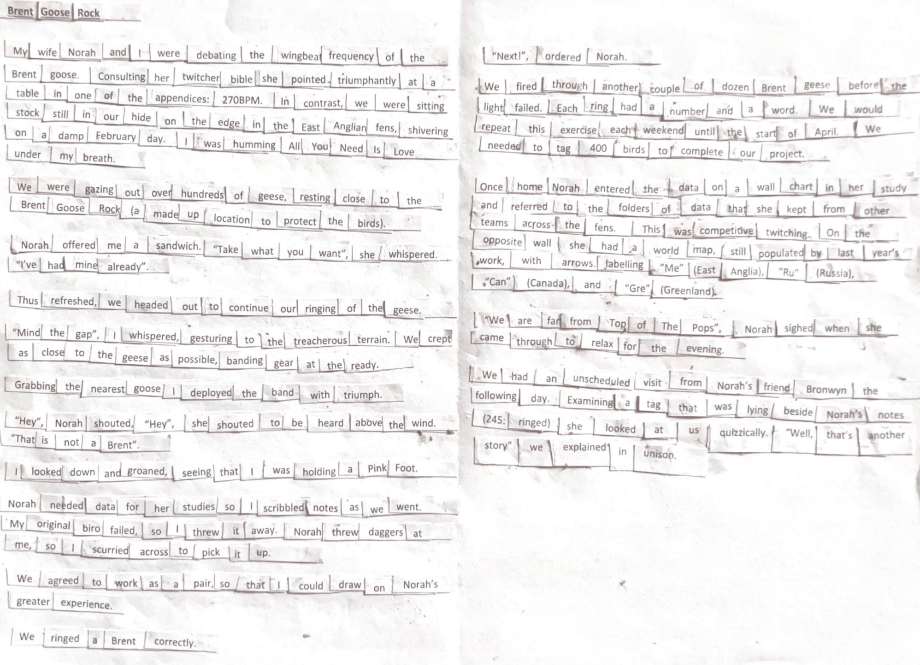 Brent Goose Rock
My wife Norah and I were debating the wingbeat frequency of the
Brent goose. Consulting her twitcher bible she pointed triumphantly at a
table in one of the appendices: 270BPM. In contrast, we were sitting
stock still in our hide on the edge in the East Anglian fens, shivering
on a damp February day. I was humming All You Need Is Love
under my breath.
We were gazing out over hundreds of geese, resting close to the
Brent Goose Rock (a made up location to protect the birds).
Norah offered me a sandwich. "Take what you want", she whispered.
"I've had mine already".
Thus refreshed, we headed out to continue our ringing of the geese.
"Mind the gap", I whispered, gesturing to the treacherous terrain. We crept
as close to the geese as possible, banding gear at the ready.
Grabbing the nearest goose I deployed the band with triumph.
"Hey", Norah shouted, "Hey", she shouted to be heard above the wind.
"That is not a Brent".
I looked down and groaned, seeing that I was holding a Pink Foot.
Norah needed data for her studies so I scribbled notes as we went.
My original biro failed, so I threw it away. Norah threw daggers at
me, so I scurried across to pick it up.
We agreed to work as a pair, so that I could draw on Norah's
greater experience.
We ringed a Brent correctly.
"Next!", ordered Norah.
We fired through another couple of dozen Brent geese before the
light failed. Each ring had a number and a word. We would
repeat this exercise each weekend until the start of April. We
needed to tag 400 birds to complete our project.
Once home Norah entered the data on a wall chart in her study
and referred to the folders of data that she kept from other
teams across the fens. This was competitive twitching. On the
opposite wall she had a world map, still populated by last year's
work, with arrows labelling "Me" (East Anglia), "Ru" (Russia),
"Can" (Canada), and "Gre" (Greenland).
"We are far from Top of The Pops", Norah sighed when she
came through to relax for the evening.
We had an unscheduled visit from Norah's friend Bronwyn the
following day. Examining a tag that was lying beside Norah's notes
(245: ringed) she looked at us quizzically. "Well, that's another
story" we explained in unison.